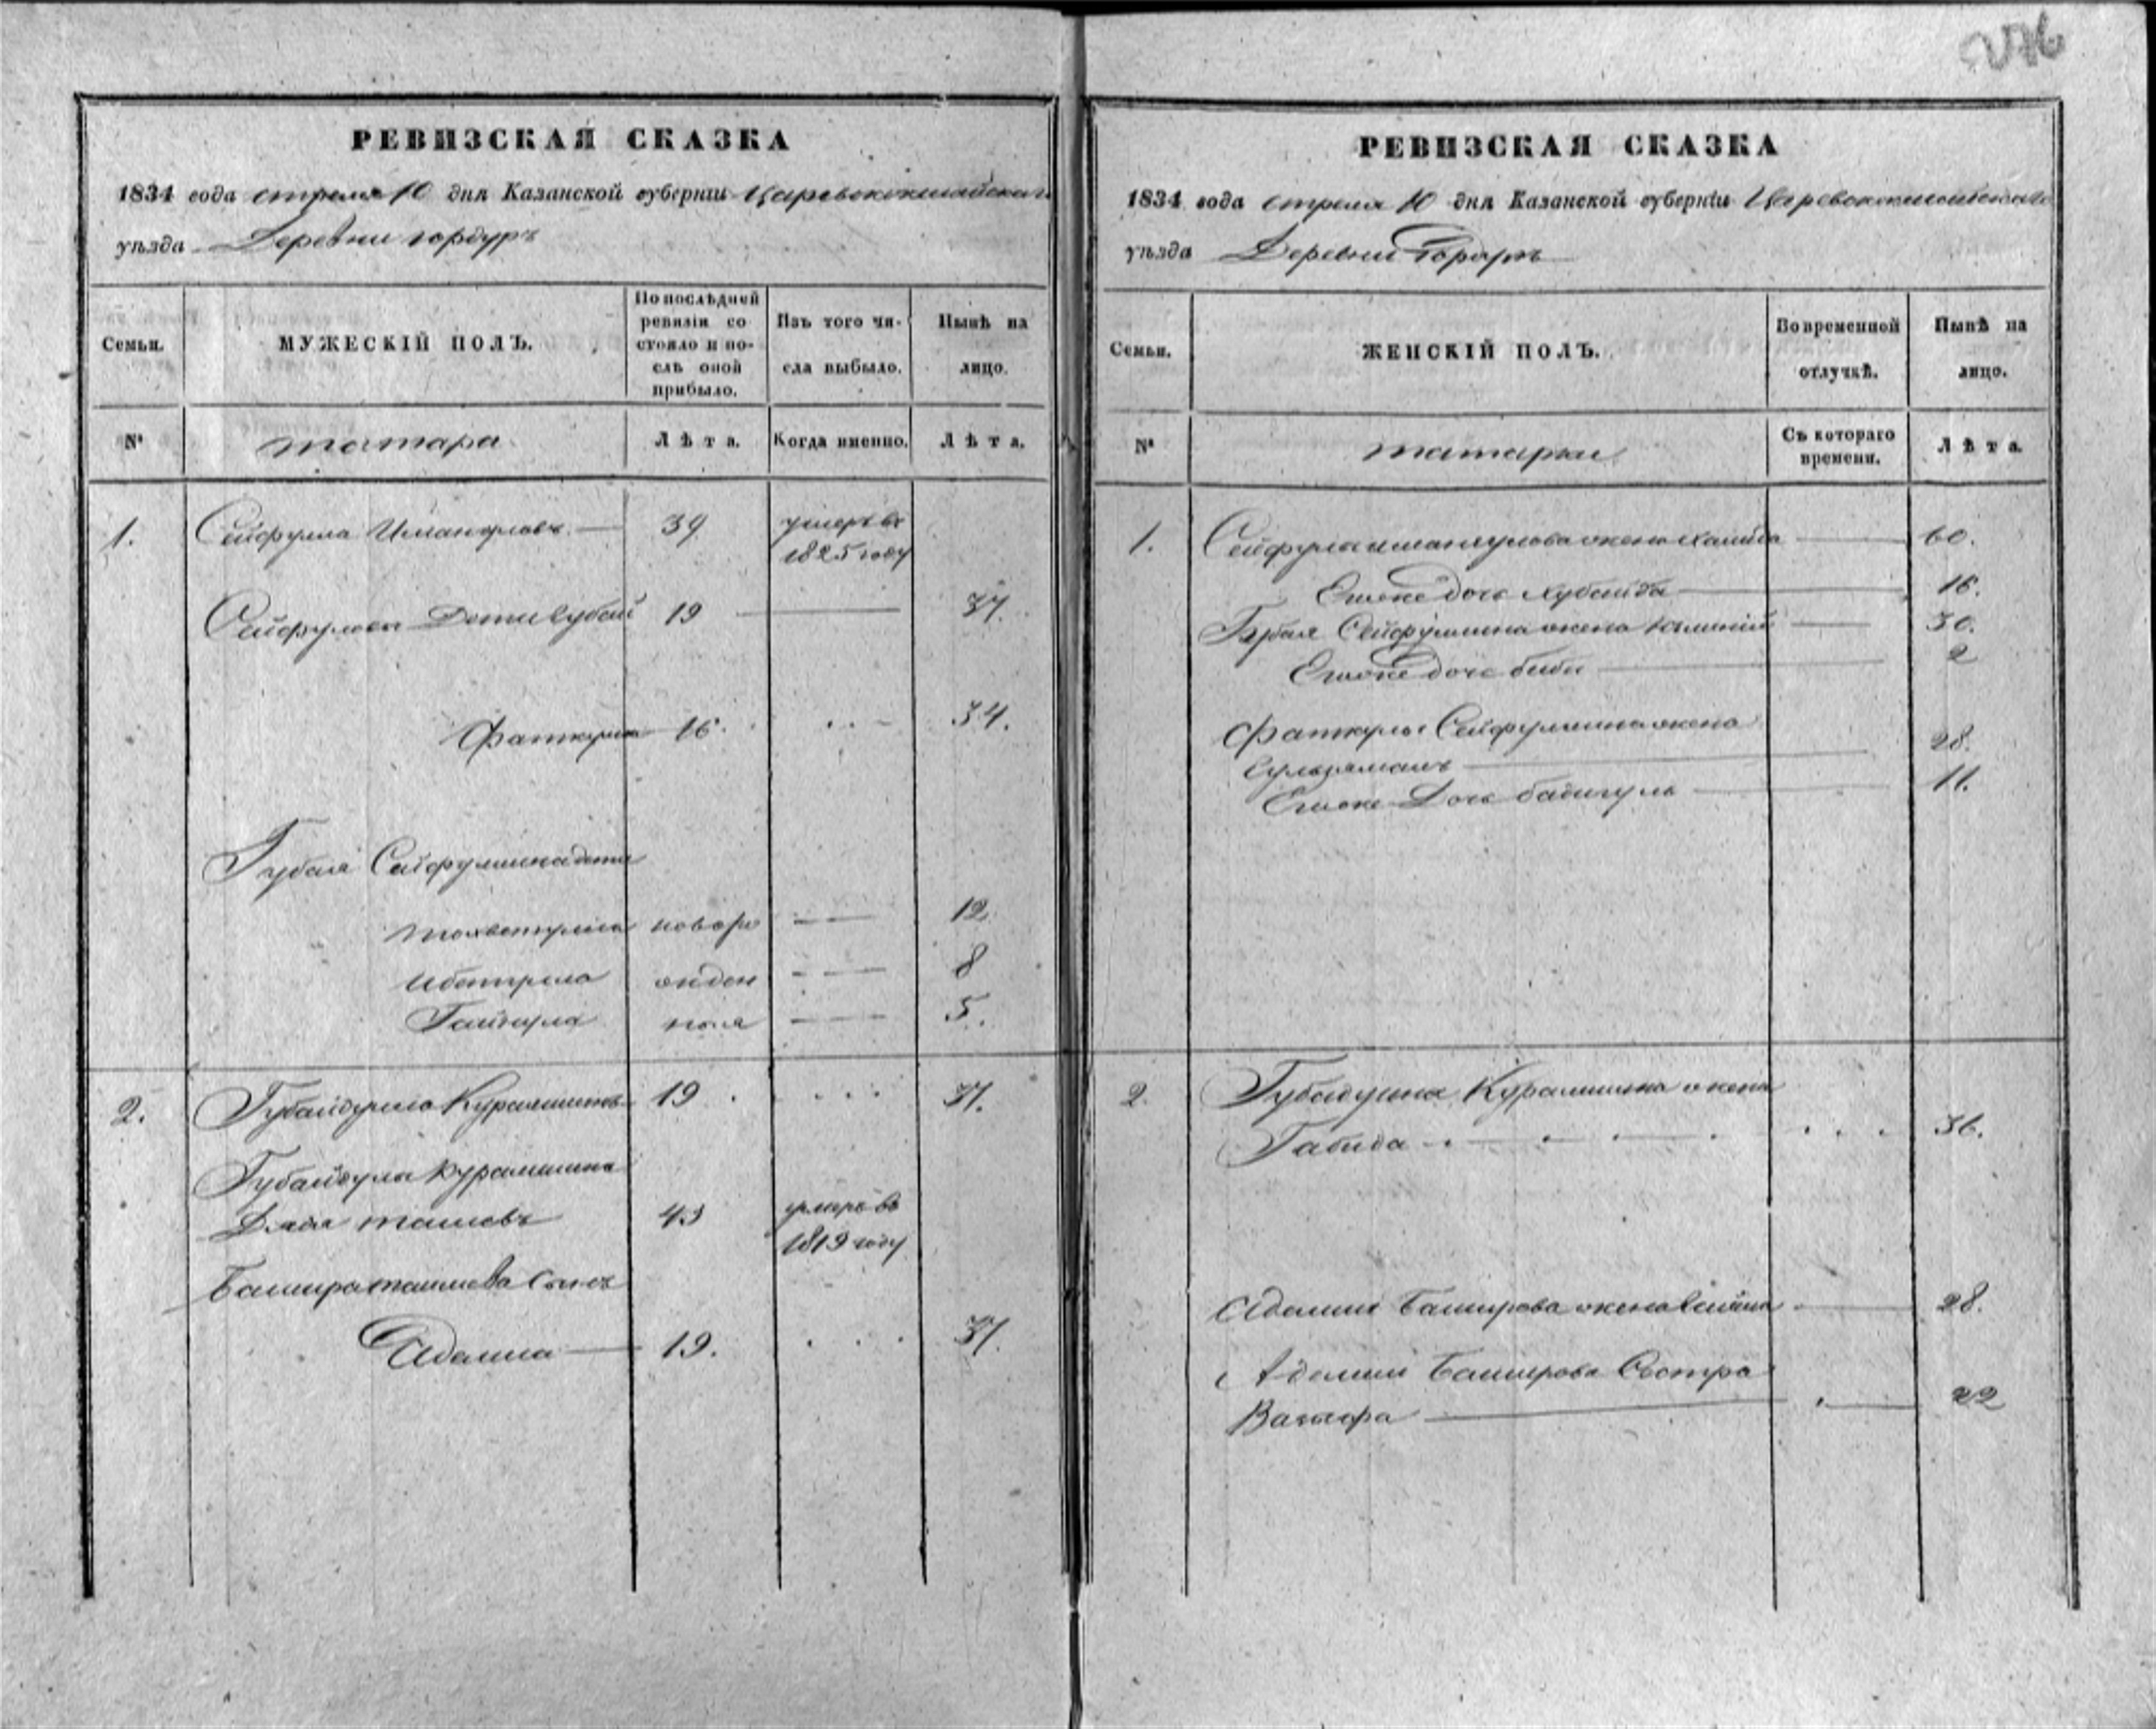 276
РЕВИЗСКАЯ СКАЗКА
1834 года апреля 10 дня Казанской губерніи Царевококшайскаго
уѣзда Деревни
Семьи.
МУЖЕСКІЙ ПОЛЪ.
По послѣдней ревизіи состояло и послѣ оной прибыло.
Изъ того числа выбыло.
Нынѣ на лицо.
№
татара
Лѣта.
Когда именно.
Лѣта.
1. Сейфулла Иманкуловъ 39 умеръ въ
1825 году
Сейфуллы Дети Губай 19 37.
Фаткулла 16. 34.
Губая Сейфуллина дети
новоро 12
Ибетулла жден 8
ныя 5.
2. Губайдулла Курамшинъ 19 37.
Губайдулы Курамшина
Дядя 43 умеръ въ
1819 году
Башира сынъ
19. 37.
РЕВИЗСКАЯ СКАЗКА
1834 года апреля 10 дня Казанской губерніи Царевококшайскаго
уѣзда Деревни
Семьи.
ЖЕНСКІЙ ПОЛЪ.
Во временной отлучкѣ.
Нынѣ на лицо.
№
татарки
Съ котораго времени.
Лѣта.
1. Сейфулы Иманкулова жена 60.
Ево же дочь Хубайда 16.
Губая Сейфуллина жена 30.
Ево же дочь биби 2
Фаткулы Сейфуллина жена
28.
Ево же Дочь бадигуль 11.
2. Губайдулла Курамшина жена
Габида 36.
Баширова жена 28.
Баширова Сестра
22